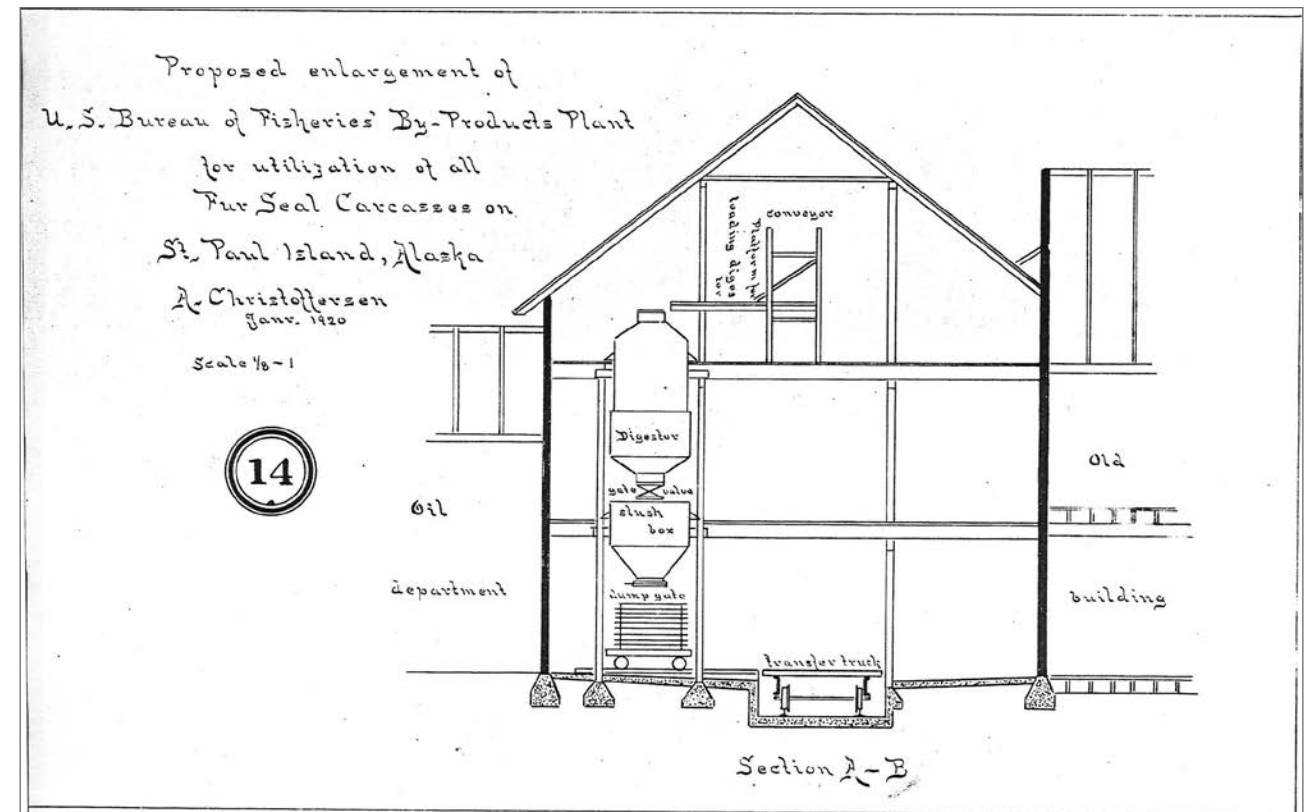 Proposed enlargement of
U.S. Bureau of Fisheries' By-Products Plant
for utilization of all
Fur Seal Carcasses on
St. Paul Island, Alaska
A. Christoffersen
Janr. 1920
Scale 1/8-1
14
conveyor
Platform for
loading diges
tor
Digestor
gate valve
slush
box
dump gate
transfer truck
Oil
department
Old
building
Section A-B